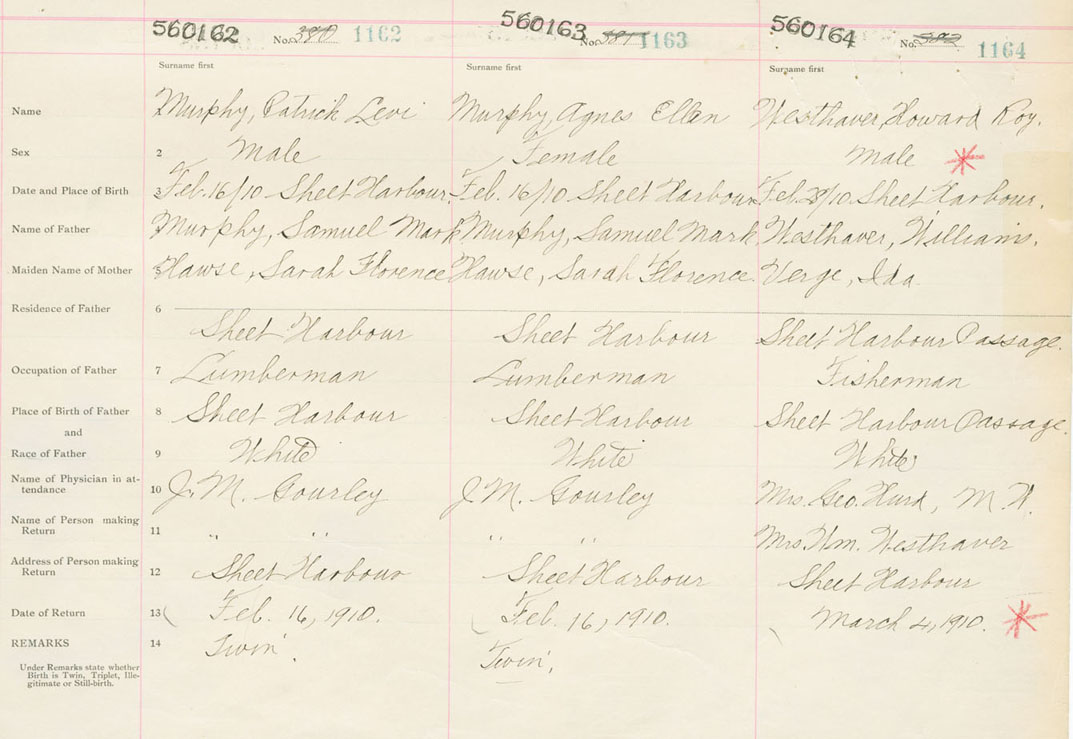 560162 No. 380 1162 560163 No. 381 1163 560164 No. 382 1164
Surname first Surname first Surname first
Name Murphy, Patrick Levi Murphy, Agnes Ellen Westhaver, Howard Roy.
Sex 2 Male Female Male
Date and Place of Birth 3 Feb. 16/10 Sheet Harbour. Feb. 16/10 Sheet Harbour Feb. 28/10 Sheet Harbour.
Name of Father Murphy, Samuel Mark Murphy, Samuel Mark Westhaver, William.
Maiden Name of Mother 5 Hawse, Sarah Florence Hawse, Sarah Florence. Verge, Ida
Residence of Father 6
Sheet Harbour Sheet Harbour Sheet Harbour Passage.
Occupation of Father 7 Lumberman Lumberman Fisherman
Place of Birth of Father 8 Sheet Harbour Sheet Harbour Sheet Harbour Passage.
and
Race of Father 9 White White White
Name of Physician in at-
tendance 10 J. M. Gourley J M. Gourley Mrs. Geo. Hurd, M. W.
Name of Person making
Return 11 " " " " Mrs. Wm. Westhaver
Address of Person making
Return 12 Sheet Harbour Sheet Harbour Sheet Harbour
Date of Return 13 Feb. 16, 1910. Feb. 16, 1910. March 4, 1910.
REMARKS 14 Twin. Twin.
Under Remarks state whether
Birth is Twin, Triplet, Ille-
gitimate or Still-birth.